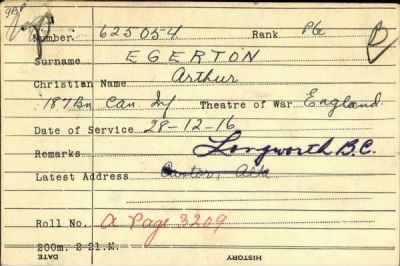 Number. 625054 Rank Pte
Surname EGERTON
Christian Name Arthur
187 Bn Can. Inf Theatre of War England.
Date of Service 28-12-16
Remarks Longworth B.C.
Latest Address Castor, Alta
Roll No. A Page 3209
200m. 2-21.M. HISTORY